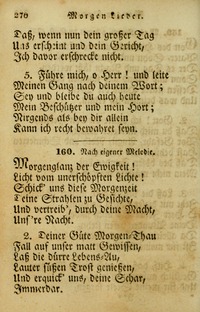 270 Morgen Lieder.
Daß, wenn nun dein großer Tag
Uns erscheint und dein Gericht,
Ich davor erschrecke nicht.
5. Führe mich, o Herr! und leite
Meinen Gang nach deinem Wort;
Sey und bleibe du auch heute
Mein Beschützer und mein Hort;
Nirgends als bey dir allein
Kann ich recht bewahret seyn.
160. Nach eigener Melodie.
Morgenglanz der Ewigkeit!
Licht vom unerschöpften Lichte!
Schick' uns diese Morgenzeit
Deine Strahlen zu Gesichte,
Und vertreib', durch deine Macht,
Uns're Nacht.
2. Deiner Güte Morgen-Thau
Fall auf unser matt Gewissen,
Laß die dürre Lebens-Au,
Lauter süßen Trost genießen,
Und erquick' uns, deine Schar,
Immerdar.